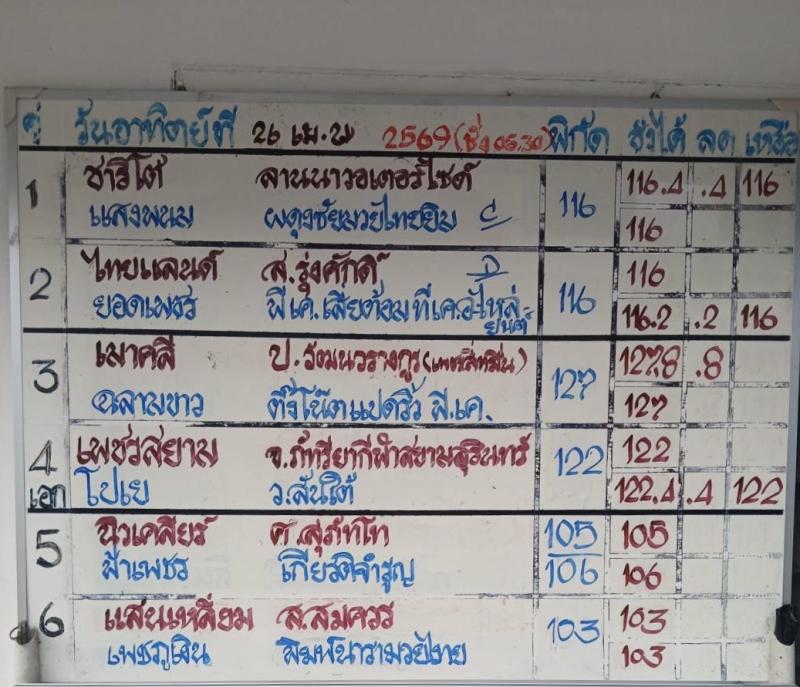 คู่ วันอาทิตย์ที่ 26 เม.ย 2569 (ชั่ง 05.30) พิกัด ชั่งได้ ลด เหลือ
1 ชาริโต้ ลานนาวอเตอร์ไซด์ 116 116.4 .4 116
แสงพนม ผดุงชัยมวยไทยยิม 116
2 ไทยแลนด์ ส.รุ่งศักดิ์ 116 116
ยอดเพชร พี่เค.เสี่ยต้อม ที.เค.อะไหล่ยนต์ 116.2 .2 116
3 เมาคลี ป. (เพชรสี่หมื่น) 127 127.8 .8
ฉลามขาว ติ๊งโน๊ตแปดริ้ว พี.เค. 127
4 เพชรสยาม จ.ภัทรียากีฬาสยามสุรินทร์ 122 122
เอก โปเย ว.สันใต้ 122.4 .4 122
5 นิวเคลียร์ ศ.สุภัทโท 105 105
ฟ้าเพชร เกียรติจำรูญ 106 106
6 แสนเหลี่ยม ส.สมควร 103 103
เพชรภูเงิน พิมพ์นารามวยไทย 103